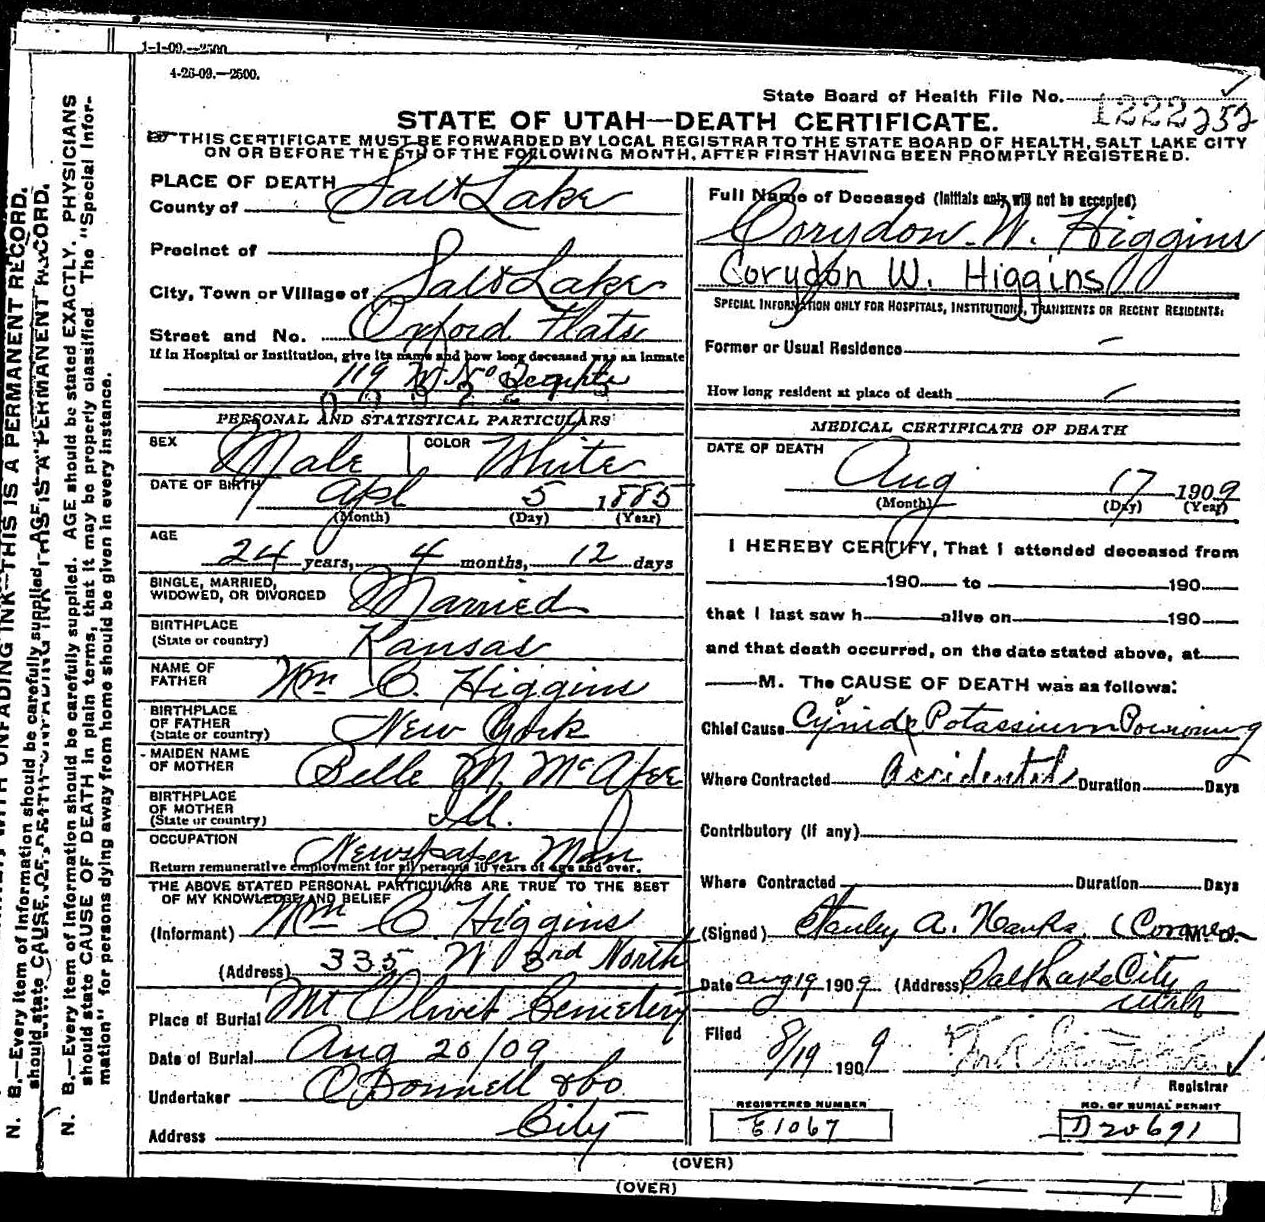 1-1-09.—2500
4-26-09.—2500.
State Board of Health File No. 1222252
STATE OF UTAH—DEATH CERTIFICATE.
THIS CERTIFICATE MUST BE FORWARDED BY LOCAL REGISTRAR TO THE STATE BOARD OF HEALTH, SALT LAKE CITY
ON OR BEFORE THE 5TH OF THE FOLLOWING MONTH, AFTER FIRST HAVING BEEN PROMPTLY REGISTERED.
PLACE OF DEATH
County of Salt Lake
Precinct of
City, Town or Village of Salt Lake
Street and No. Oxford Flats
If in Hospital or Institution, give its name and how long deceased was an inmate
119 W No Temple
PERSONAL AND STATISTICAL PARTICULARS
SEX Male COLOR White
DATE OF BIRTH Apl 5 1885
(Month) (Day) (Year)
AGE
24 years, 4 months, 12 days
SINGLE, MARRIED,
WIDOWED, OR DIVORCED Married
BIRTHPLACE
(State or country) Kansas
NAME OF
FATHER Wm C. Higgins
BIRTHPLACE
OF FATHER
(State or country) New York
MAIDEN NAME
OF MOTHER Belle M. McAfee
BIRTHPLACE
OF MOTHER
(State or country) Ill.
OCCUPATION Newspaper Man
Return remunerative employment for all persons 10 years of age and over.
THE ABOVE STATED PERSONAL PARTICULARS ARE TRUE TO THE BEST
OF MY KNOWLEDGE AND BELIEF
(Informant) Wm C. Higgins
(Address) 335 W 3rd North
Place of Burial Mt Olivet Cemetery
Date of Burial Aug 20/09
Undertaker O'Donnell & Co.
Address City
Full Name of Deceased (Initials only will not be accepted)
Corydon W. Higgins
Corydon W. Higgins
SPECIAL INFORMATION ONLY FOR HOSPITALS, INSTITUTIONS, TRANSIENTS OR RECENT RESIDENTS:
Former or Usual Residence
How long resident at place of death
MEDICAL CERTIFICATE OF DEATH
DATE OF DEATH
Aug 17 1909
(Month) (Day) (Year)
I HEREBY CERTIFY, That I attended deceased from
190 to 190
that I last saw h alive on 190
and that death occurred, on the date stated above, at
M. The CAUSE OF DEATH was as follows:
Chief Cause Potassium
Where Contracted Accidental Duration Days
Contributory (if any)
Where Contracted Duration Days
(Signed) Stanley A. Hanks (Coroner M. D.
Date Aug 19 1909 (Address) Salt Lake City
Utah
Filed 8/19 1909
Registrar
REGISTERED NUMBER
E1067
NO. OF BURIAL PERMIT
D20691
(OVER)
(OVER)
N. B.—Every item of information should be carefully supplied. AGE should be stated EXACTLY. PHYSICIANS
should state CAUSE OF DEATH in plain terms, that it may be properly classified. The "Special Infor-
mation" for persons dying away from home should be given in every instance.
UNFADING INK—THIS IS A PERMANENT RECORD.
N. B.—Every item of information should be carefully supplied.
should state CAUSE OF DEATH